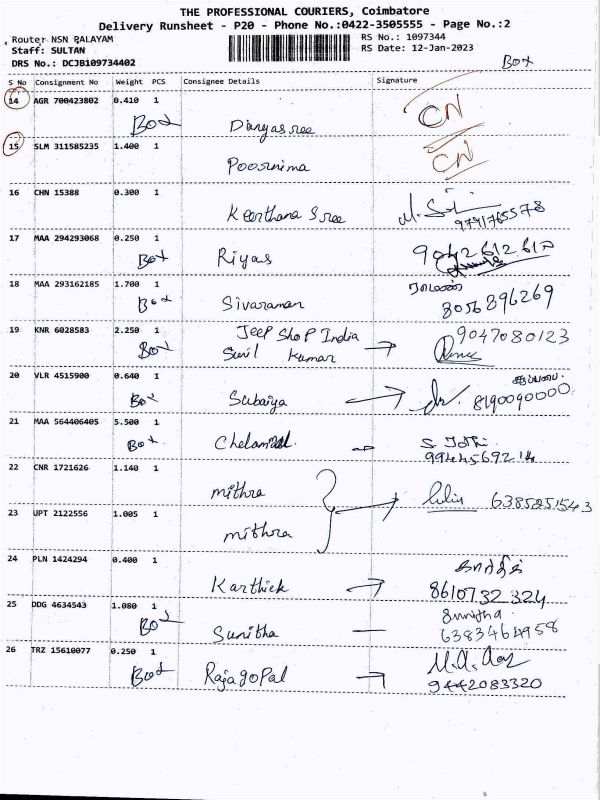 THE PROFESSIONAL COURIERS, Coimbatore
Delivery Runsheet - P20 - Phone No.:0422-3505555 - Page No.:2
Route: NSN PALAYAM RS No.: 1097344
Staff: SULTAN RS Date: 12-Jan-2023
DRS No.: DCJB109734402 Box
S No Consignment No Weight PCS Consignee Details Signature
14 AGR 700423802 0.410 1 CN
Box Divyasree
15 SLM 311585235 1.400 1 CN
Poornima
16 CHN 15388 0.300 1
Keerthana Sree 9791765578
17 MAA 294293068 0.250 1
Box Riyas
18 MAA 293162185 1.700 1
Box Sivaraman 8056896269
19 KNR 6028583 2.250 1 JEEP SHOP India 9047080123
Box Sunil Kumar
20 VLR 4515900 0.640 1
Box Subaiya 8190090000
21 MAA 564406405 5.500 1 S. Jothi
Box Chelammal 9944569214
22 CNR 1721626 1.140 1
mithra 6385251543
23 UPT 2122556 1.005 1
mithra
24 PLN 1424294 0.400 1 கார்த்திக்
Karthick 8610732324
25 DDG 4634543 1.080 1 Sunitha
Box Sunitha 6383464958
26 TRZ 15610077 0.250 1
Box Rajagopal 9442083320